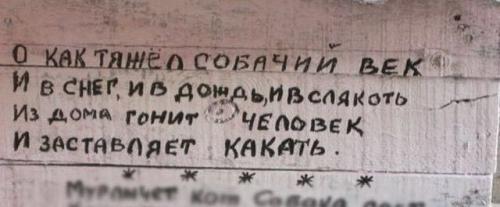 О КАК ТЯЖЁЛ СОБАЧИЙ ВЕК
И В СНЕГ, И В ДОЖДЬ, И В СЛЯКОТЬ
ИЗ ДОМА ГОНИТ ЧЕЛОВЕК
И ЗАСТАВЛЯЕТ КАКАТЬ.
* * * * *